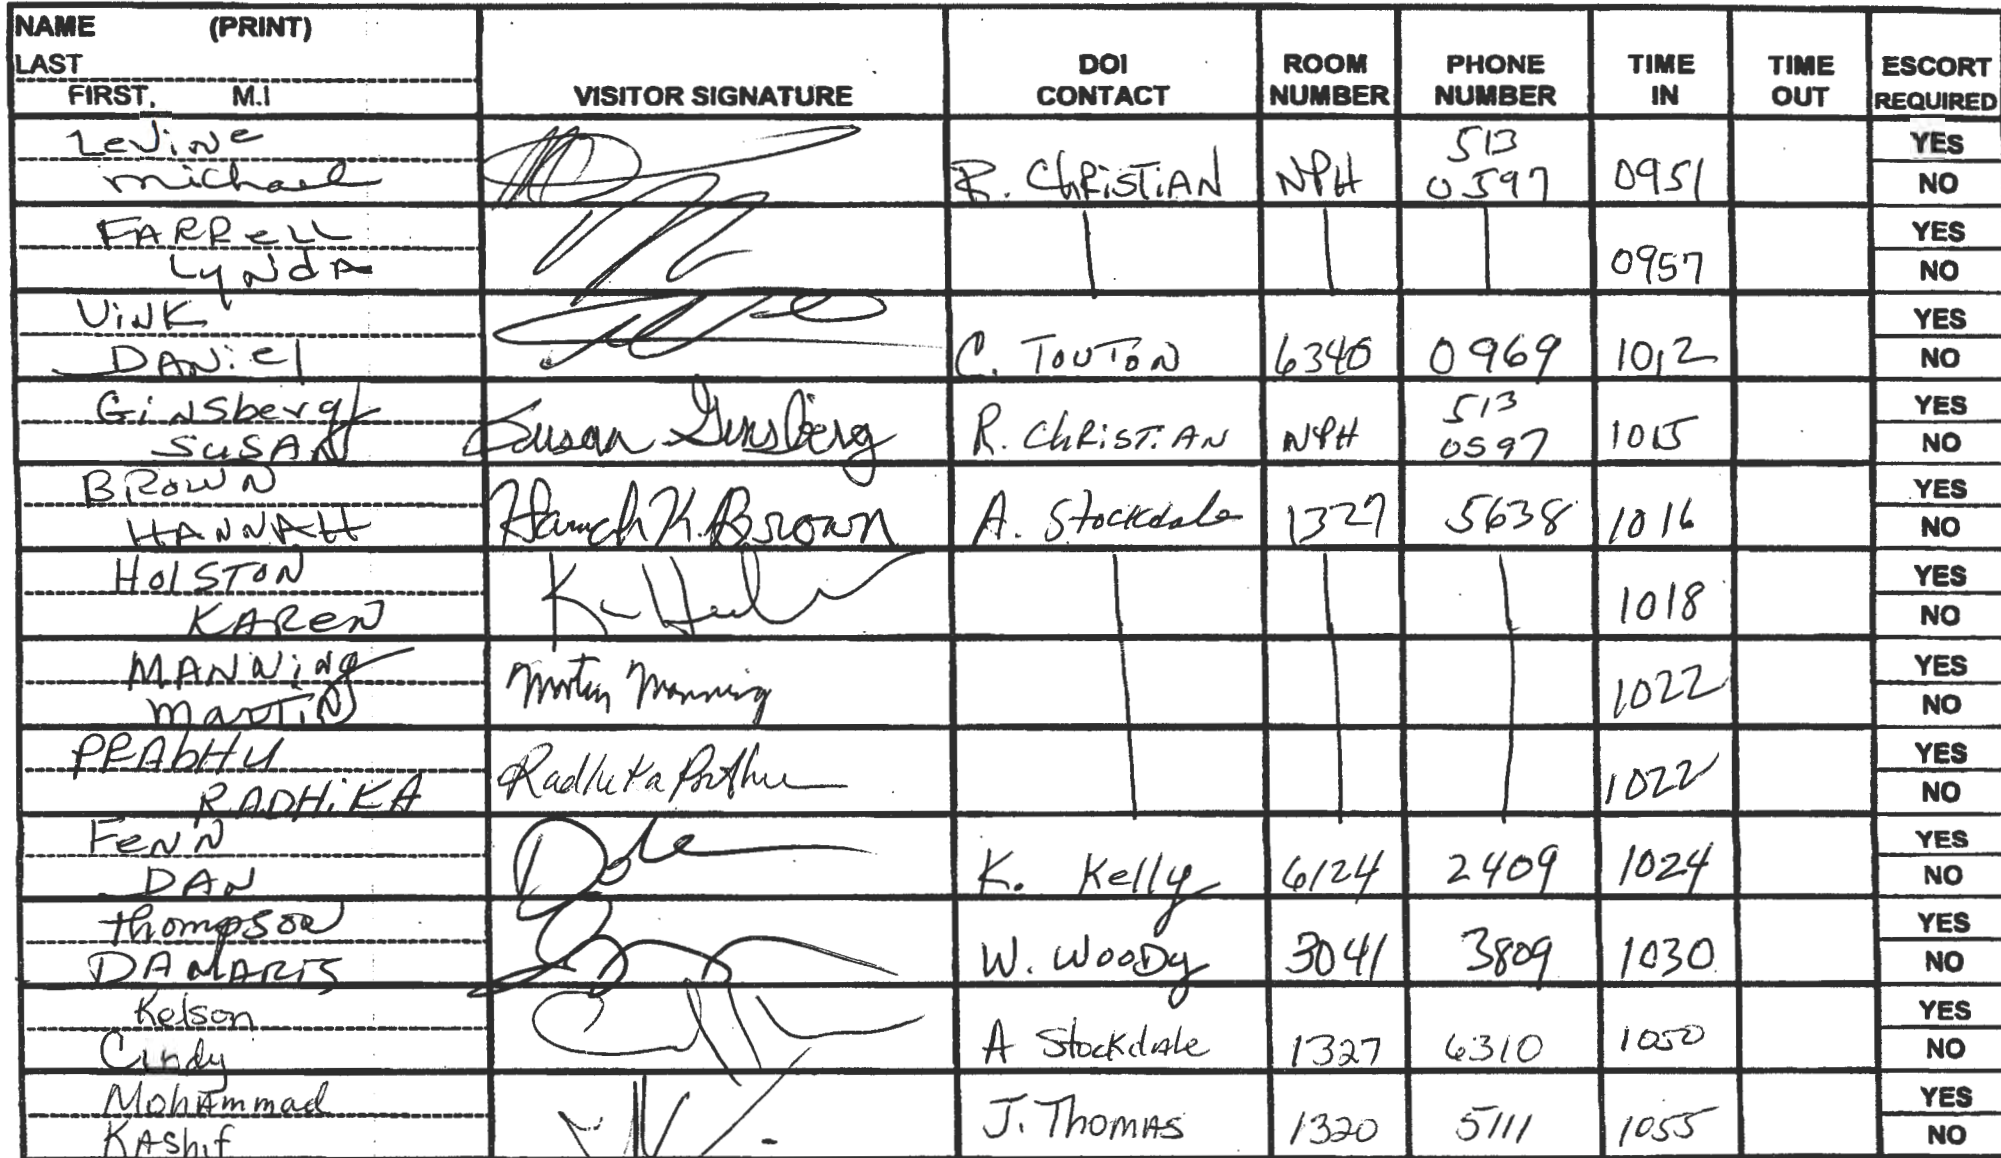 NAME (PRINT)
LAST
FIRST, M.I
VISITOR SIGNATURE
DOI
CONTACT
ROOM
NUMBER
PHONE
NUMBER
TIME
IN
TIME
OUT
ESCORT
REQUIRED
Levine
michael
R. CHRISTIAN NPH 513
0597 0951
YES
NO
FARRELL
LYNDA
0957
YES
NO
VINK
DANiel
C. TOUTON 6340 0969 1012
YES
NO
GiNSberg
SUSAN
Susan Ginsberg
R. CHRISTIAN NPH 513
0597 1015
YES
NO
BROWN
HANNAH
Hannah K. Brown
A. Stockdale 1327 5638 1016
YES
NO
HOLSTON
KAREN
1018
YES
NO
MANNiNg
MARTIN
Martin Manning
1022
YES
NO
PRAbHU
RADHiKA
Radhika Prabhu
1022
YES
NO
FeNN
DAN
K. Kelly 6124 2409 1024
YES
NO
thompson
DAMARIS
W. WOODy 3041 3809 1030
YES
NO
Kelson
Cindy
A Stockdale 1327 6310 1050
YES
NO
MohAmmad
KAShif
J. THOMAS 1320 5111 1055
YES
NO